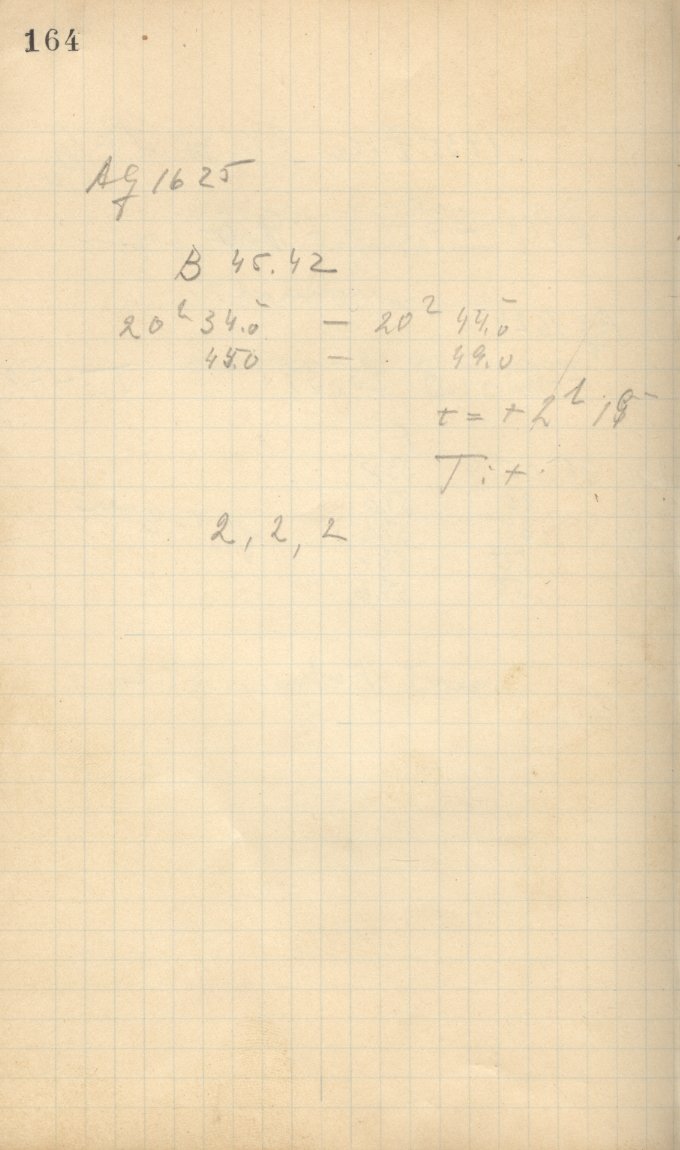 164
Ag 1625
B 45.42
20ʰ 34.5 — 20ʰ 44.5
45.0 — 49.0
t = + 2ʰ
T : +
2, 2, 2